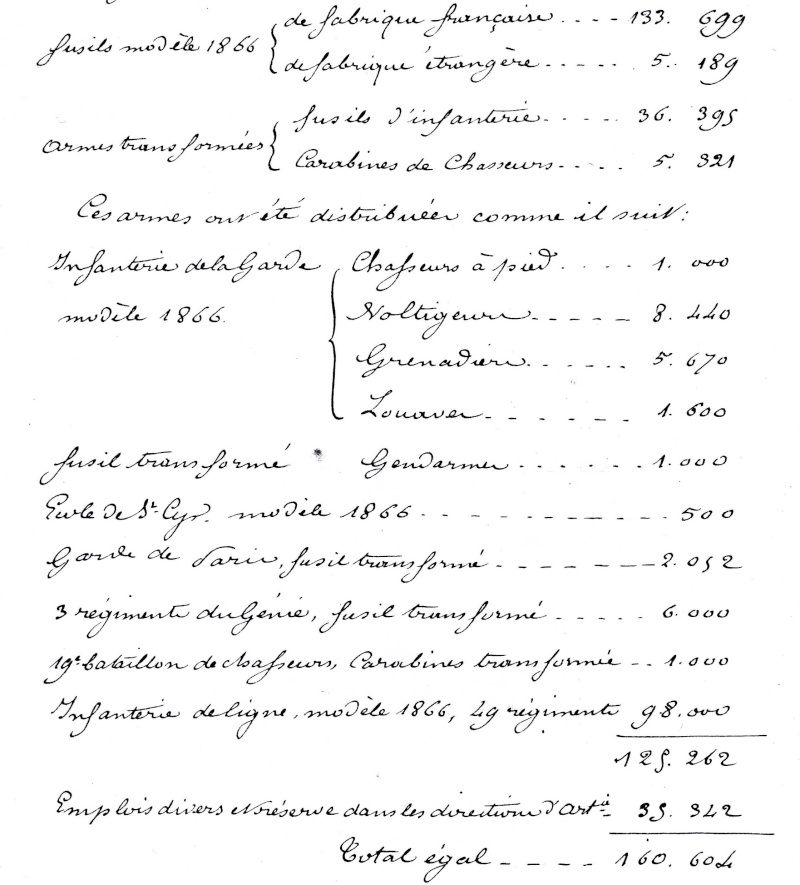 fusils modèle 1866 { de fabrique française .... 133. 699
de fabrique étrangère ..... 5. 189
armes transformées { fusils d'infanterie ..... 36. 395
Carabines de Chasseurs .... 5. 321
Ces armes ont été distribuées comme il suit :
Infanterie de la Garde { Chasseurs à pied ..... 1. 000
modèle 1866. Voltigeurs ----- 8. 440
Grenadiers ..... 5. 670
Zouaves ----- 1. 600
fusil transformé Gendarmes ...... 1.000
Ecole de St. Cyr. modèle 1866 --------- 500
Garde de Paris, fusil transformé ------- 2. 052
3 régiments du Génie, fusil transformé ..... 6.000
19e bataillon de chasseurs, Carabines transformées -- 1.000
Infanterie de ligne, modèle 1866, 49 régiments 98.000
125. 262
Emplois divers et réserve dans les directions d'Artie 35. 342
Total égal ---- 160. 604